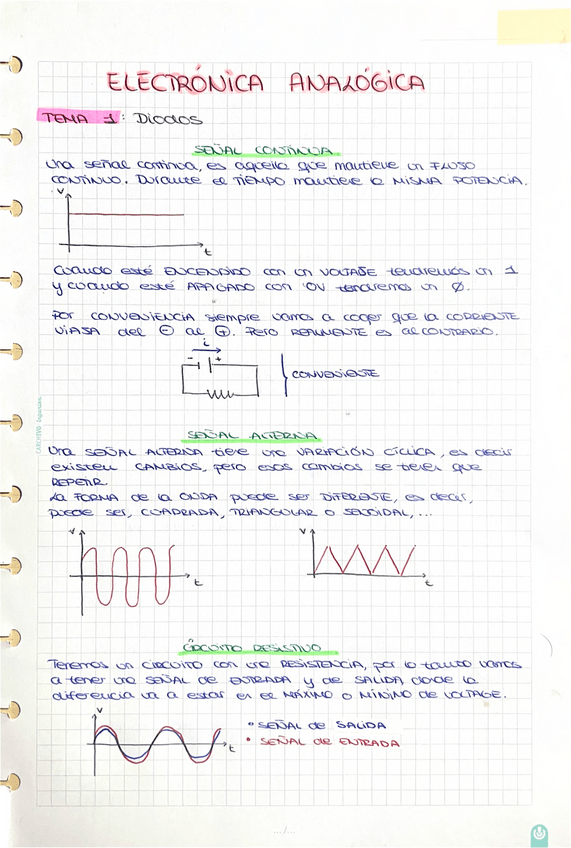 ELECTRÓNICA ANALÓGICA
TEMA 1: Diodos
SEÑAL CONTINUA
Una señal continua, es aquella que mantiene un FLUJO
CONTINUO. Durante el TIEMPO mantiene la MISMA POTENCIA.
V
t
Cuando esté ENCENDIDO con un VOLTAJE tendremos un 1
y cuando esté APAGADO con 0V tendremos un Ø.
Por CONVENIENCIA siempre vamos a coger que la CORRIENTE
VIAJA del ⊖ al ⊕. Pero REALMENTE es al CONTRARIO.
i
- +
CONVENIENTE
SEÑAL ALTERNA
Una SEÑAL ALTERNA tiene una VARIACIÓN CÍCLICA, es decir
existen CAMBIOS, pero esos cambios se tienen que
REPETIR.
La FORMA de la ONDA puede ser DIFERENTE, es decir,
puede ser, CUADRADA, TRIANGULAR O SENOIDAL, ...
V
t
V
t
CIRCUITO RESISTIVO
Tenemos un CIRCUITO con una RESISTENCIA, por lo tanto vamos
a tener una SEÑAL de ENTRADA y de SALIDA, donde la
diferencia va a estar en el MÁXIMO o MÍNIMO de VOLTAGE.
V
t
• SEÑAL de SALIDA
• SEÑAL de ENTRADA
.../...